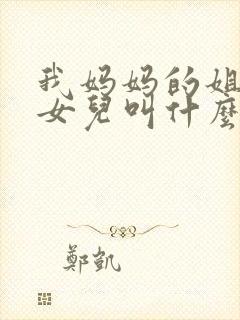 我妈妈的姐
女兒叫什麼
鄭凱